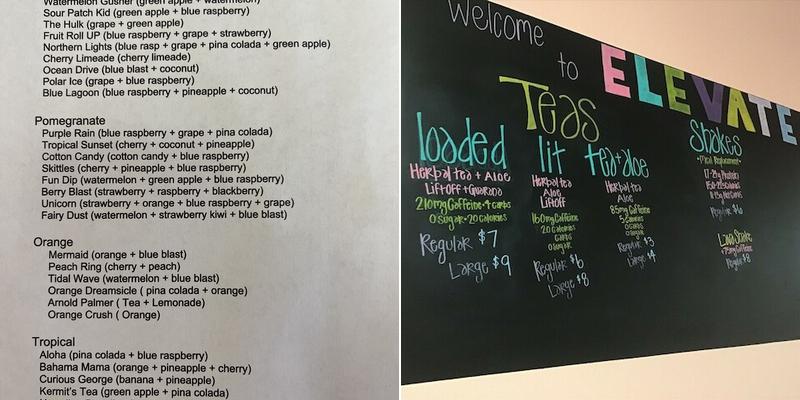 Watermelon Gusher (green apple + watermelon)
Sour Patch Kid (green apple + blue raspberry)
The Hulk (grape + green apple)
Fruit Roll UP (blue raspberry + grape + strawberry)
Northern Lights (blue rasp + grape + pina colada + green apple)
Cherry Limeade (cherry limeade)
Ocean Drive (blue blast + coconut)
Polar Ice (grape + blue raspberry)
Blue Lagoon (blue raspberry + pineapple + coconut)
Pomegranate
Purple Rain (blue raspberry + grape + pina colada)
Tropical Sunset (cherry + coconut + pineapple)
Cotton Candy (cotton candy + blue raspberry)
Skittles (cherry + pineapple + blue raspberry)
Fun Dip (watermelon + green apple + blue raspberry)
Berry Blast (strawberry + raspberry + blackberry)
Unicorn (strawberry + orange + blue raspberry + grape)
Fairy Dust (watermelon + strawberry kiwi + blue blast)
Orange
Mermaid (orange + blue blast)
Peach Ring (cherry + peach)
Tidal Wave (watermelon + blue blast)
Orange Dreamsicle ( pina colada + orange)
Arnold Palmer ( Tea + Lemonade)
Orange Crush ( Orange)
Tropical
Aloha (pina colada + blue raspberry)
Bahama Mama (orange + pineapple + cherry)
Curious George (banana + pineapple)
Kermit's Tea (green apple + pina colada)
Welcome
to
ELEVATE
Teas
loaded
Herbal tea + Aloe
Liftoff + Guarana
210mg Caffeine • 4 carbs
0 Sugar • 20 Calories
Regular $7
Large $9
lit
Herbal tea
Aloe
Liftoff
160mg Caffeine
20 Calories
Carbs
0 Sugar
Regular $6
Large $8
tea + aloe
Herbal tea
Aloe
85mg Caffeine
5 Calories
0 Carbs
0 Sugar
Regular $3
Large $4
Shakes
*Meal Replacement*
Regular
Shake
Regular $8